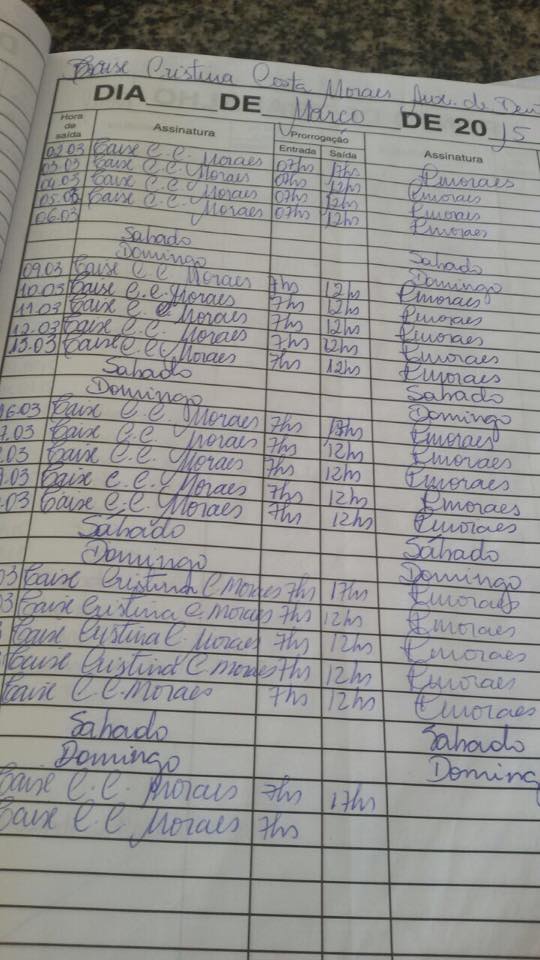 Taise Cristina Costa Moraes Aux. de Den
DIA DE Março DE 20 15
Hora de saída Assinatura Prorrogação Entrada Saída Assinatura
02.03 Taise C. C. Moraes 07hs 17hs Emoraes
03.03 Taise C. C. Moraes 07hs 12hs Emoraes
04.03 Taise C. C. Moraes 07hs 12hs Emoraes
05.03 Taise C. C. Moraes 07hs 12hs Emoraes
06.03
Sabado Sabado
Domingo Domingo
09.03 Taise C. C. Moraes 7hs 12hs Emoraes
10.03 Taise C. C. Moraes 7hs 12hs Emoraes
11.03 Taise C. C. Moraes 7hs 12hs Emoraes
12.03 Taise C. C. Moraes 7hs 12hs Emoraes
13.03 Taise C. C. Moraes 7hs 12hs Emoraes
Sabado Sabado
Domingo Domingo
16.03 Taise C. C. Moraes 7hs 17hs Emoraes
7.03 Taise C. C. Moraes 7hs 12hs Emoraes
.03 Taise C. C. Moraes 7hs 12hs Emoraes
.03 Taise C. C. Moraes 7hs 12hs Emoraes
.03 Taise C. C. Moraes 7hs 12hs Emoraes
Sabado Sabado
Domingo Domingo
03 Taise Cristina C Moraes 7hs 17hs Emoraes
3 Taise Cristina C. Moraes 7hs 12hs Emoraes
Taise Cristina C. Moraes 7hs 12hs Emoraes
Taise Cristina C Moraes 7hs 12hs Emoraes
Taise C C. Moraes 7hs 12hs Emoraes
Sabado Sabado
Domingo Doming
Taise C. C. Moraes 7hs 17hs
Taise C. C. Moraes 7hs